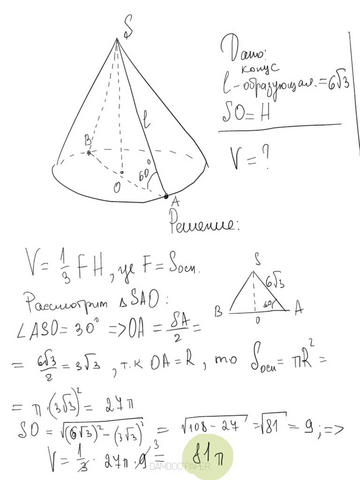 S
Дано:
конус
l - образующая = 6√3
SO = H
V = ?
l
B
60°
O
A
Решение:
V = 1/3 FH, где F = Sосн.
Рассмотрим △SAO:
∠ASO = 30° => OA = SA/2 =
= 6√3/2 = 3√3, т.к OA = R, то Sосн = πR² =
= π·(3√3)² = 27π
SO = √((6√3)² - (3√3)²) = √(108 - 27) = √81 = 9; =>
V = 1/3 · 27π · 9³ = 81π
S
6√3
60°
B
O
A